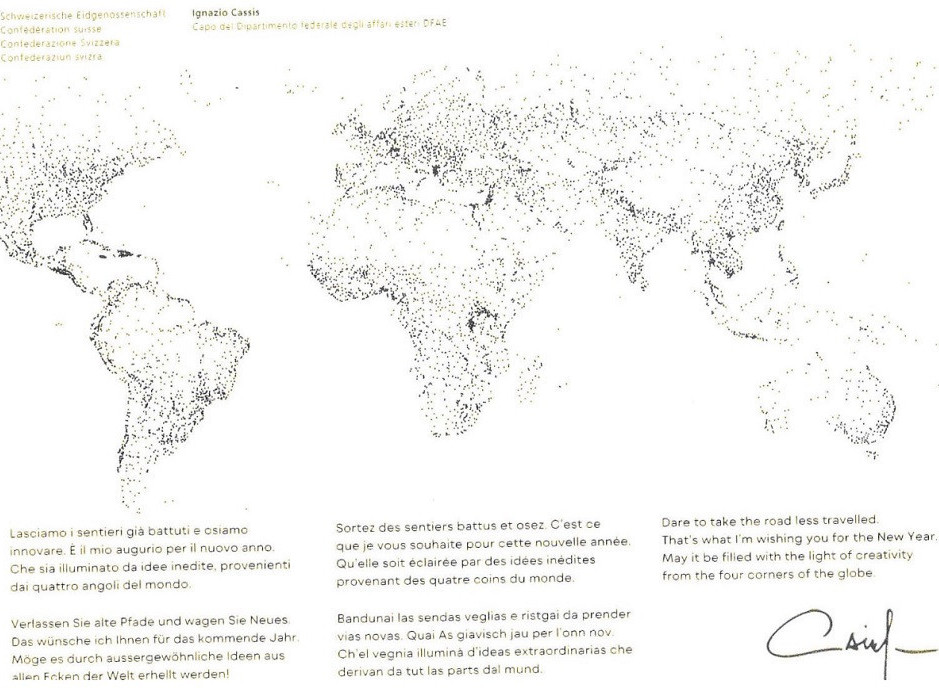 Schweizerische Eidgenossenschaft
Confédération suisse
Confederazione Svizzera
Confederaziun svizra
Ignazio Cassis
Capo del Dipartimento federale degli affari esteri DFAE
Lasciamo i sentieri già battuti e osiamo
innovare. È il mio augurio per il nuovo anno.
Che sia illuminato da idee inedite, provenienti
dai quattro angoli del mondo.
Verlassen Sie alte Pfade und wagen Sie Neues.
Das wünsche ich Ihnen für das kommende Jahr.
Möge es durch aussergewöhnliche Ideen aus
allen Ecken der Welt erhellt werden!
Sortez des sentiers battus et osez. C'est ce
que je vous souhaite pour cette nouvelle année.
Qu'elle soit éclairée par des idées inédites
provenant des quatre coins du monde.
Bandunai las sendas veglias e ristgai da prender
vias novas. Quai As giavisch jau per l'onn nov.
Ch'el vegnia illuminà d'ideas extraordinarias che
derivan da tut las parts dal mund.
Dare to take the road less travelled.
That's what I'm wishing you for the New Year.
May it be filled with the light of creativity
from the four corners of the globe.